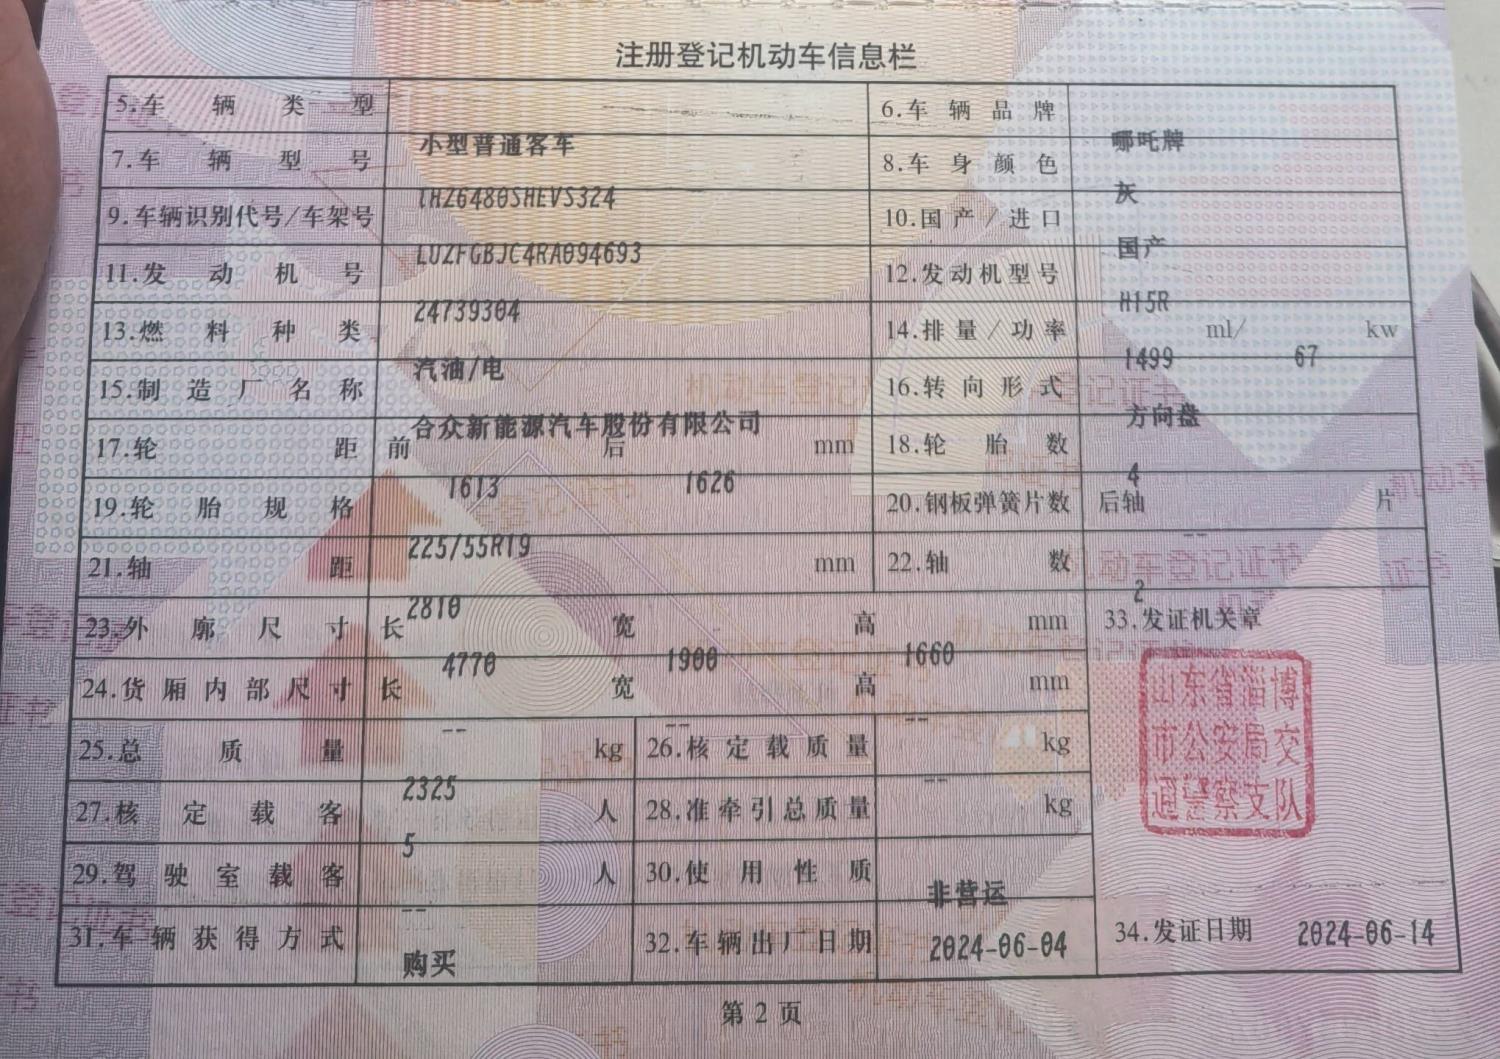 注册登记机动车信息栏
5.车辆类型 小型普通客车 6.车辆品牌 哪吒牌
7.车辆型号 THZ6480SHEVS324 8.车身颜色 灰
9.车辆识别代号/车架号 LUZFGBJC4RA094693 10.国产/进口 国产
11.发动机号 24739304 12.发动机型号 H15R
13.燃料种类 汽油/电 14.排量/功率 1499 ml/ 67 kw
15.制造厂名称 合众新能源汽车股份有限公司 16.转向形式 方向盘
17.轮距 前 1613 后 1626 mm 18.轮胎数 4
19.轮胎规格 225/55R19 20.钢板弹簧片数 后轴 -- 片
21.轴距 2810 mm 22.轴数 2
23.外廓尺寸 长 4770 宽 1900 高 1660 mm 33.发证机关章
24.货厢内部尺寸 长 -- 宽 -- 高 -- mm
山东省淄博
市公安局交
通警察支队
25.总质量 2325 kg 26.核定载质量 -- kg
27.核定载客 5 人 28.准牵引总质量 kg
29.驾驶室载客 -- 人 30.使用性质 非营运
31.车辆获得方式 购买 32.车辆出厂日期 2024-06-04 34.发证日期 2024-06-14
第2页